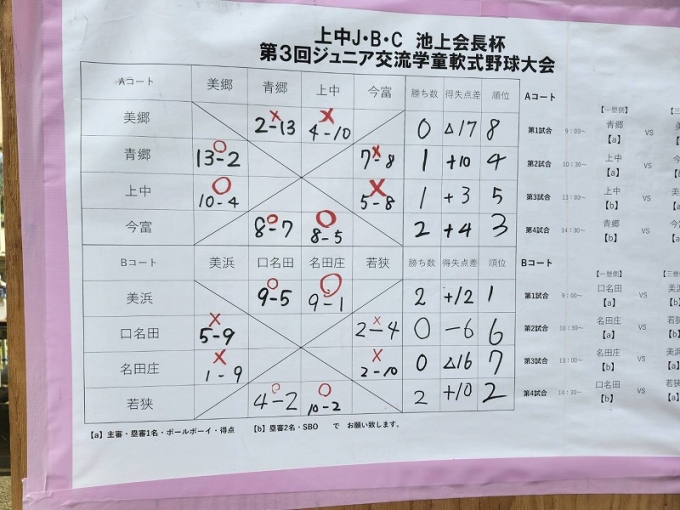 上中J・B・C 池上会長杯
第3回ジュニア交流学童軟式野球大会
Aコート 美郷 青郷 上中 今富 勝ち数 得失点差 順位
美郷 2-13 × 4-10 × 0 △17 8
青郷 13-2 ○ 7-8 × 1 +10 4
上中 10-4 ○ 5-8 × 1 +3 5
今富 8-7 ○ 8-5 ○ 2 +4 3
Bコート 美浜 口名田 名田庄 若狭 勝ち数 得失点差 順位
美浜 9-5 ○ 9-1 ○ 2 +12 1
口名田 5-9 × 2-4 × 0 -6 6
名田庄 1-9 × 2-10 × 0 △16 7
若狭 4-2 ○ 10-2 ○ 2 +10 2
Aコート
【一塁側】 【三
第1試合 9:00~ 青郷 【a】 VS 美
第2試合 10:30~ 上中 【a】 VS 今
第3試合 13:00~ 上中 【b】 VS 美
第4試合 14:30~ 青郷 【b】 VS 今富
Bコート
【一塁側】 【三塁
第1試合 9:00~ 口名田 【a】 VS 美浜 【b】
第2試合 10:30~ 名田庄 【a】 VS 若狭 【b】
第3試合 13:00~ 名田庄 【b】 VS 美浜 【a】
第4試合 14:30~ 口名田 【b】 VS 若狭 【a】
【a】主審・塁審1名・ボールボーイ・得点 【b】塁審2名・SBO で お願い致します。